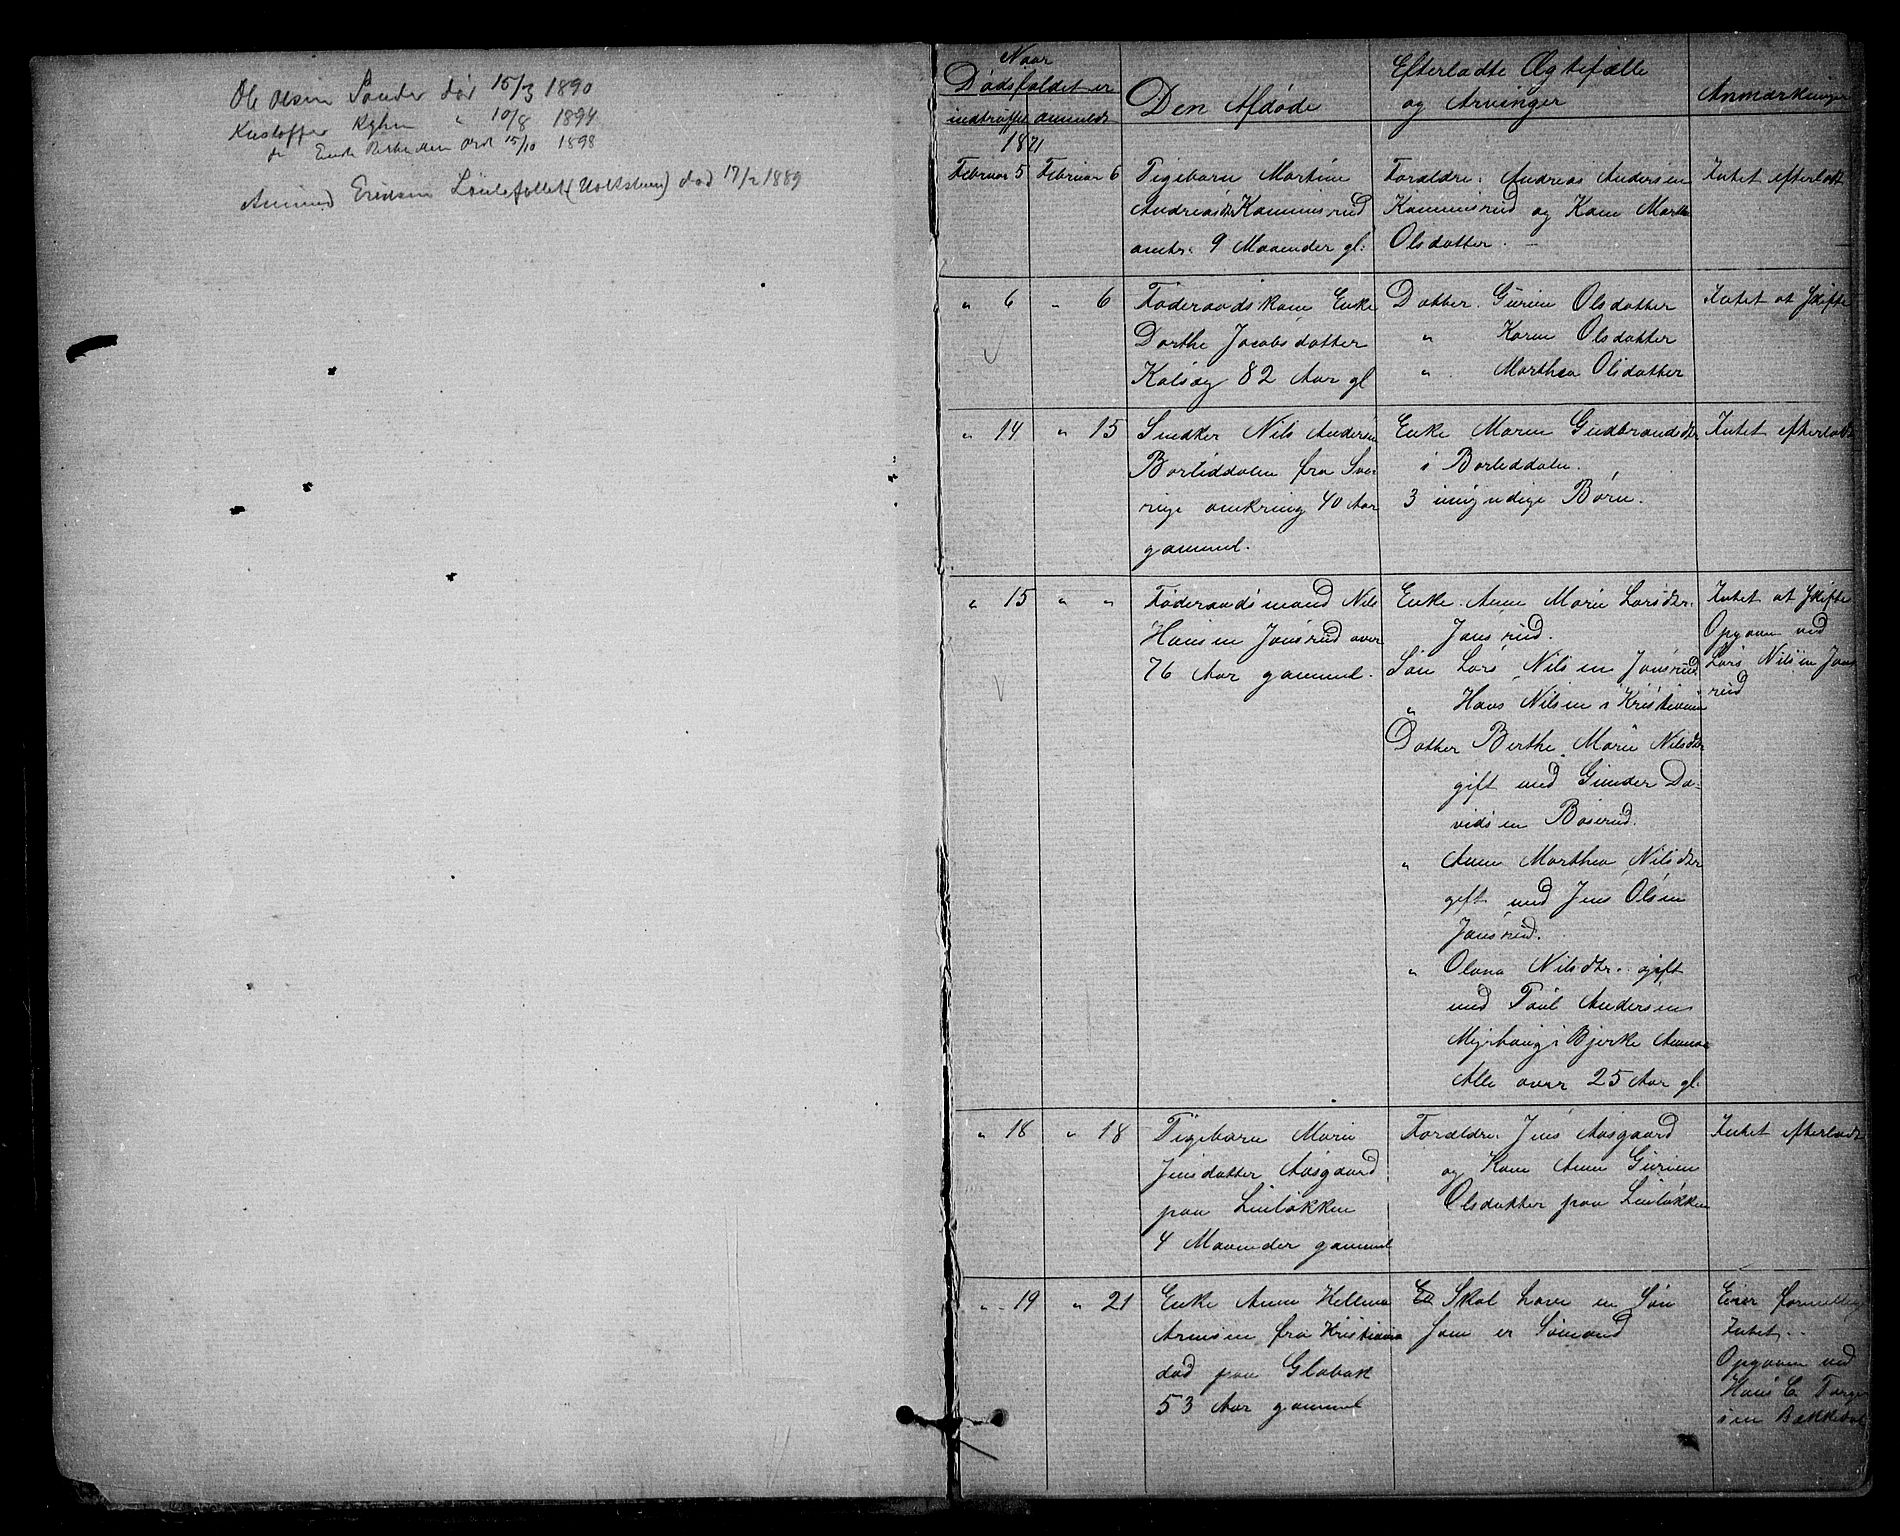 Ole Olsen Sander død 15/3 1890
Kristoffer " 10/8 1894
Enke død 15/10 1898
Amund Eriksen død 17/2 1889
Naar
Dødsfaldet er
indtruffet anmeldt
Den Afdøde
Efterladte Ægtefælle
og Arvinger
Anmærkninger
1871
Februar 5 Februar 6 Pigebarn Martine
Andreasdtr Kammesrud
omtr. 9 Maaneder gl.
Forældre: Andreas Andersen
Kammesrud og Kone Marthe
Olsdatter. —
Intet efterladt
" 6 " 6 Føderaadskone Enke
Dorthe Jacobsdatter
Kolsæg 82 Aar gl
Datter. Gurine Olsdatter
" Karen Olsdatter
" Marthea Olsdatter
Intet at Skifte
" 14 " 15 Snedker Nils Andersen
Borliddalen fra Sve-
rige omkring 40 Aar
gammel.
Enke Maren Gudbrandsdtr
i Borliddalen.
3 umyndige Børn.
Intet efterladt
" 15 " " Føderaadsmand Nils
Hansen Jonsrud over
76 Aar gammel.
Enke. Anne Marie Larsdtr.
Jonsrud.
Søn Lars Nilsen Jonsrud
" Hans Nilsen i Kristiania
Datter Berthe Marie Nilsdtr
gift med Gunder Da-
vidsen Baserud.
" Anne Marthea Nilsdtr
gift med Jens Olsen
Jonsrud.
" Olava Nilsdtr. gift
med Paul Andersen
Myrhaug i Bjerke Annex
Alle over 25 Aar gl.
Intet at Skifte
Opgaven ved
Lars Nilsen Jons
rud
" 18 " 18 Pigebarn Marie
Jensdatter Aasgaard
paa Linløkken
4 Maaneder gammel
Forældre. Jens Aasgaard
og Kone Anne Gurine
Olsdatter paa Linløkken
Intet efterladt
" 19 " 21 Enke Anne Helene
Arnesen fra Kristiania
død paa Globak
53 Aar gammel
Skal have en Søn
som er Sømand
Eier formentlig
Intet.
Opgaven ved
Hans C. Torger
sen Bakkebøl